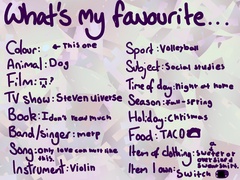 What's my favourite...
Colour: ← This one
Animal: Dog
Film: ?
TV show: Steven Uiverse
Book: I don't read much
Band/singer: merp
Song: Only love can hurt like this.
Instrument: Violin
Sport: Volleyball
Subject: Social studies
Time of day: night at home
Season: Fall-spring
Holiday: Christmas
Food: TACO
Item of clothing: sweater or oversized sweatshirt
Item I own: Switch